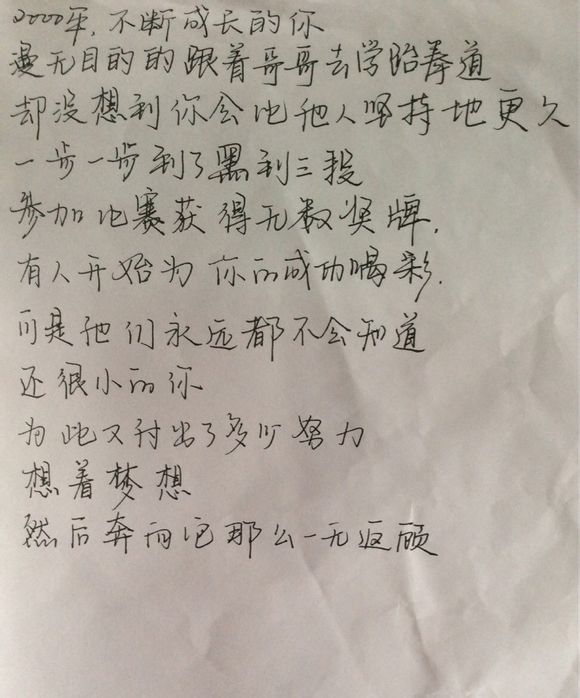 2000年,不断成长的你
漫无目的的跟着哥哥去学跆拳道
却没想到你会比他人坚持地更久
一步一步到了黑到三段
参加比赛获得无数奖牌,
有人开始为你的成功喝彩.
可是他们永远都不会知道
还很小的你
为此又付出了多少努力
想着梦想
然后奔向它那么一无返顾